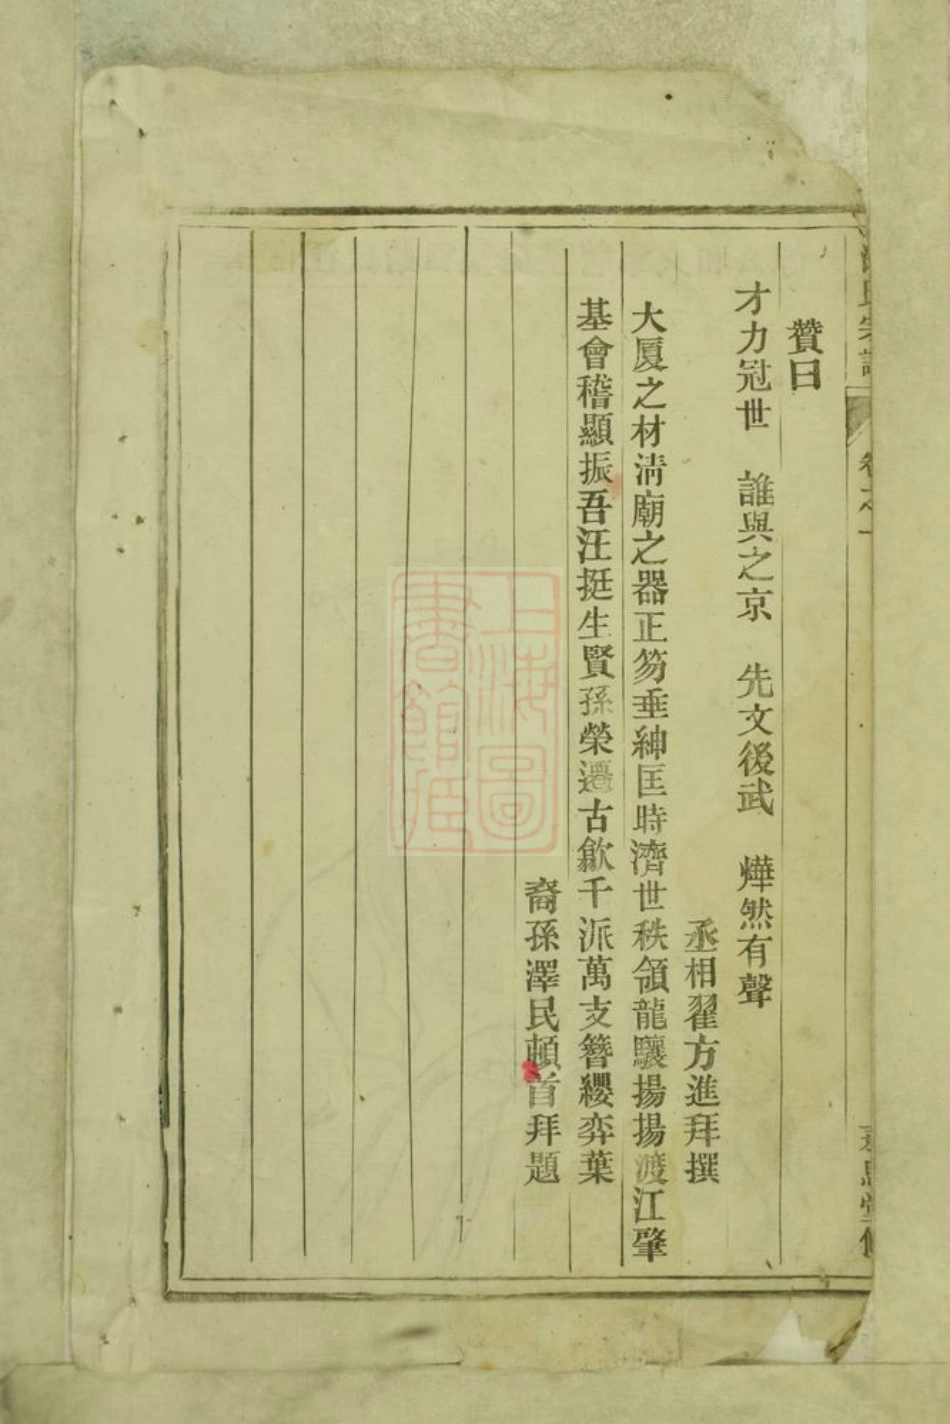 汪氏宗譜 卷之一
贊曰
才力冠世 誰與之京 先文後武 燁然有聲
丞相翟方進拜撰
大厦之材淸廟之器正笏垂紳匡時濟世秩領龍驤揚揚渡江肇
基會稽顯振吾汪挺生賢孫榮遷古歙千派萬支簪纓弈葉
裔孫澤民頓首拜題
上海圖書館藏